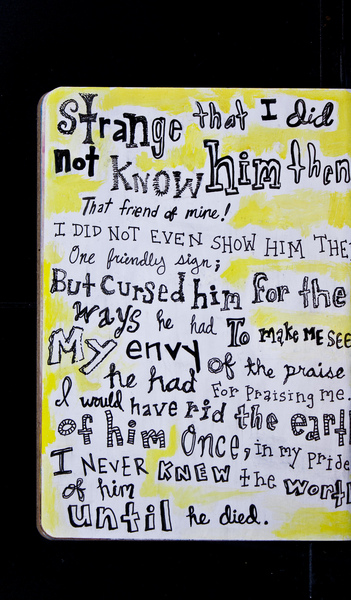 Strange that I did
not KNOW him then
That friend of mine!
I DID NOT EVEN SHOW HIM THE
One friendly sign;
But cursed him for the
ways he had To make ME see
My envy of the praise
he had For Praising me.
I would have rid the eart
of him Once, in my pride
I NEVER KNEW the wort
of him
until he died.